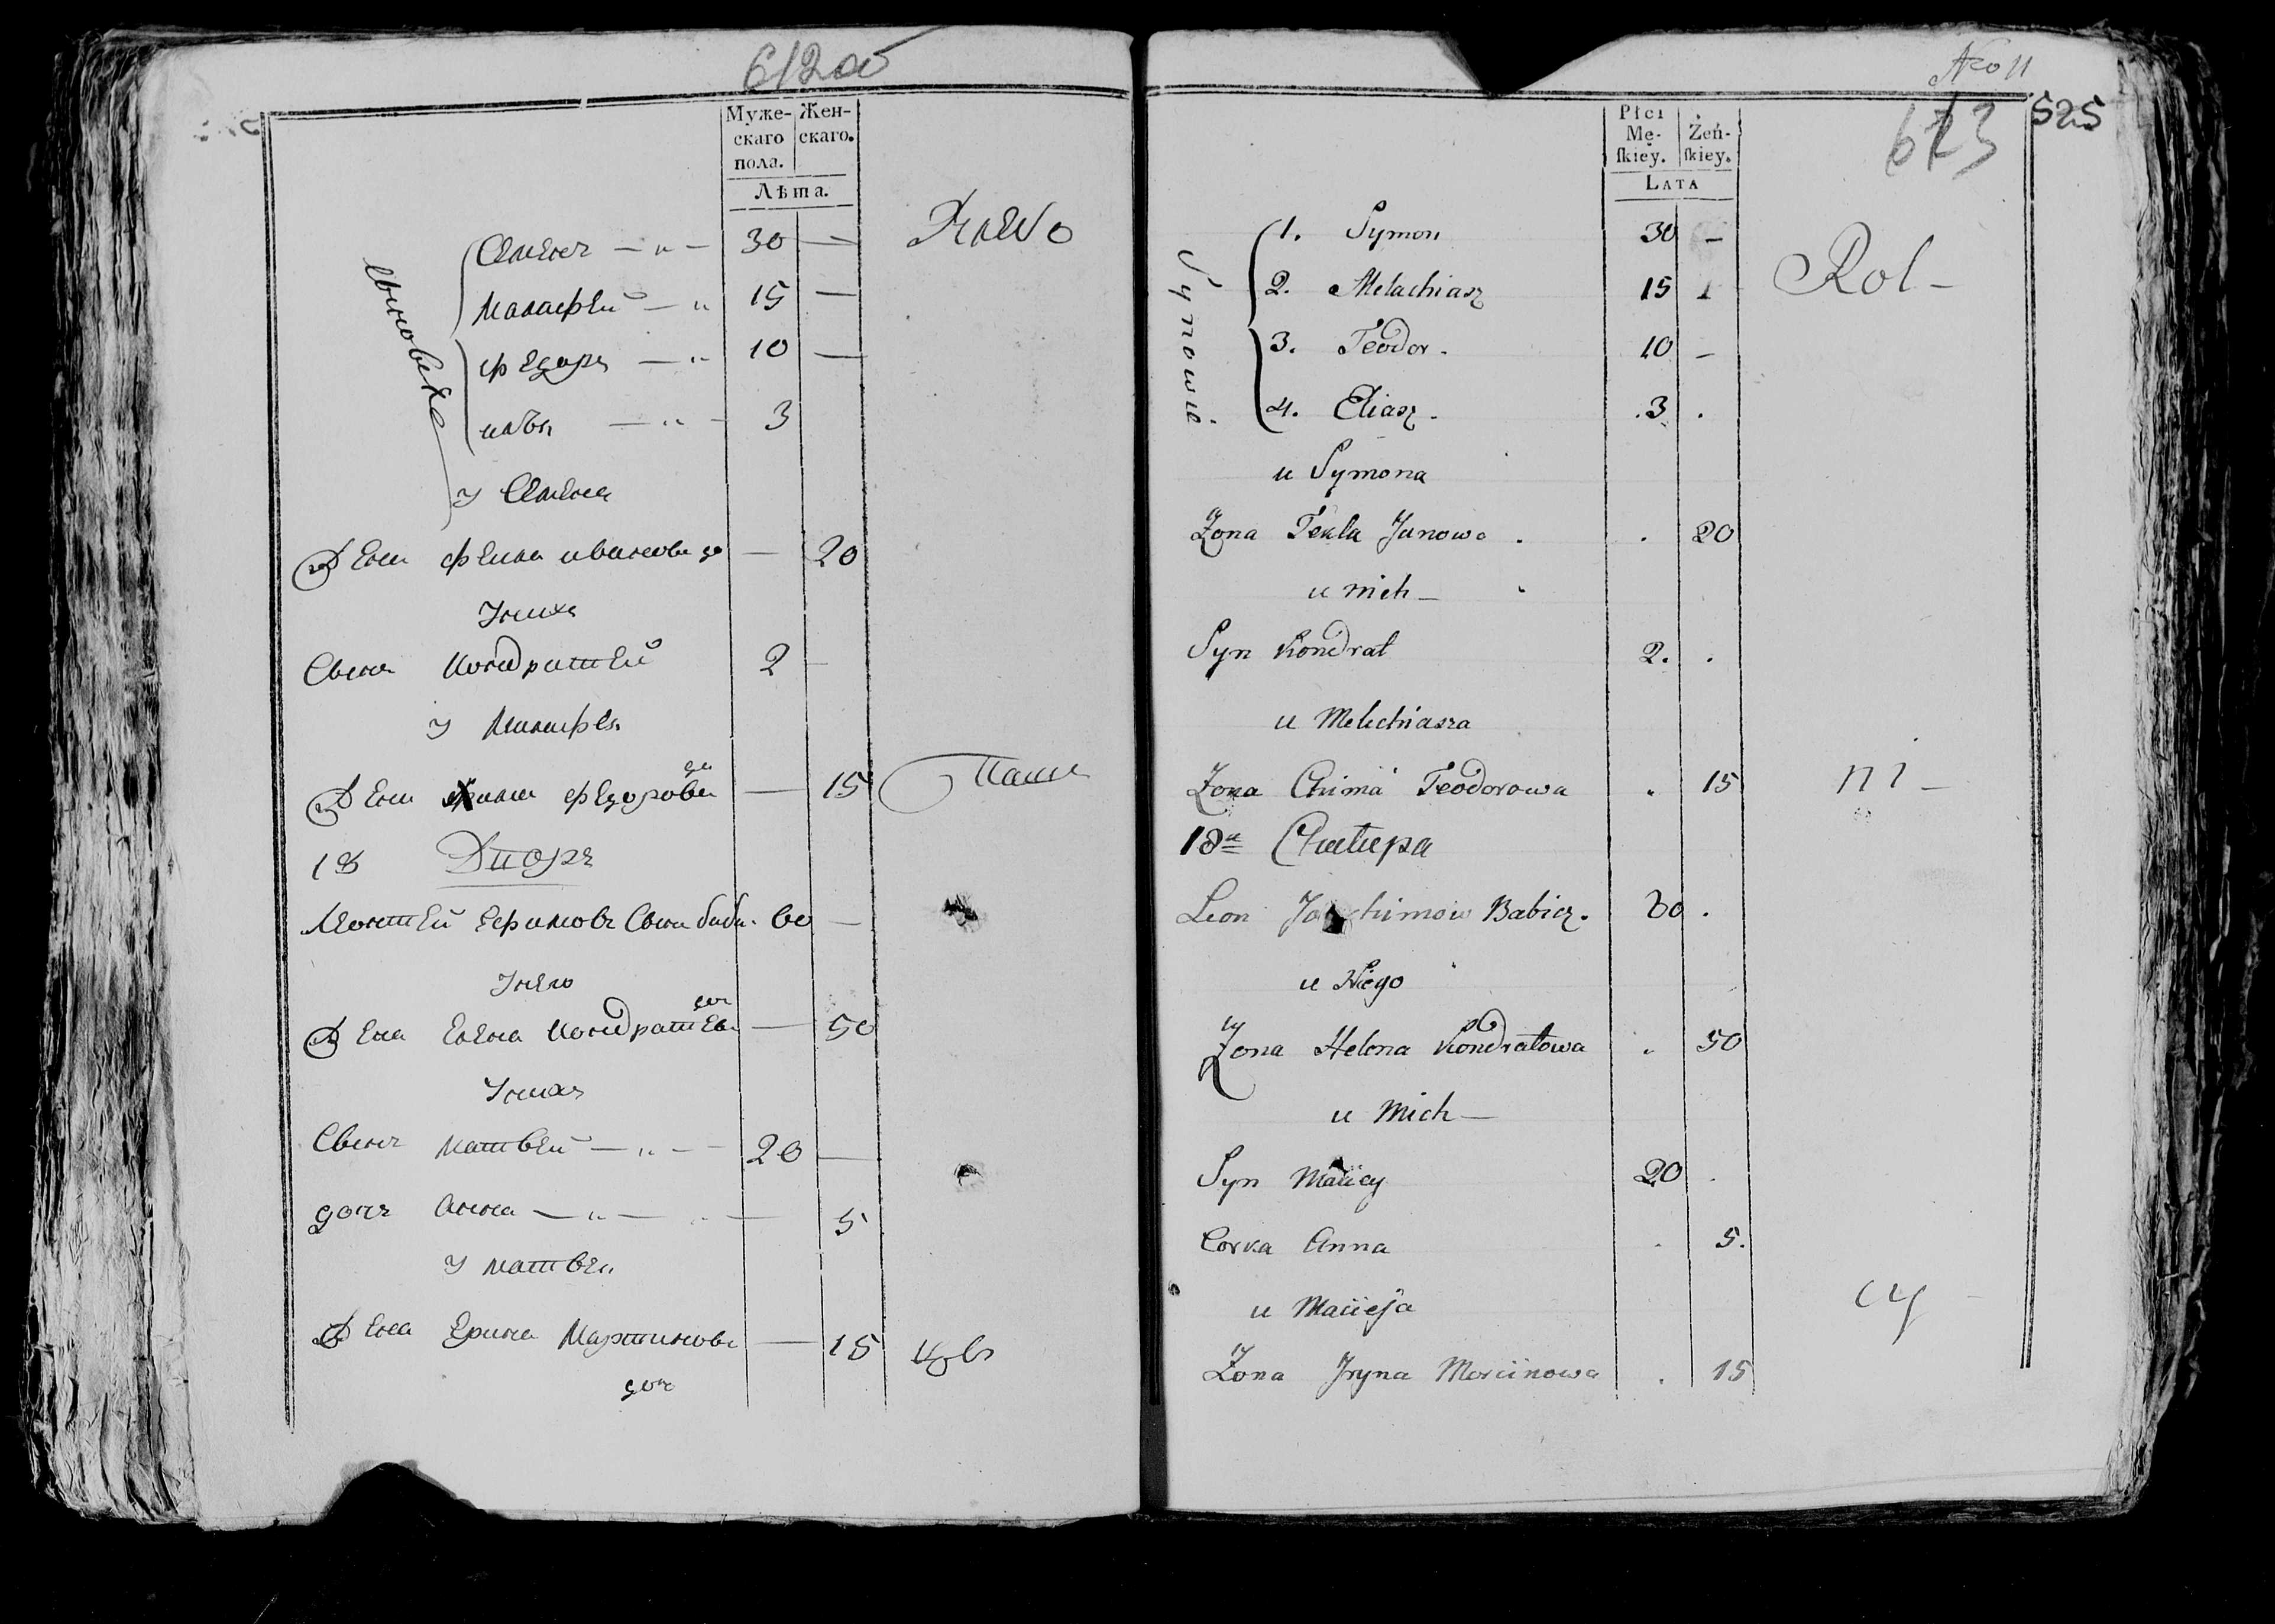 612об
Муже-
скаго
пола.
Жен-
скаго.
Лѣта.
Сыновья
Семенъ 30 —
Малафей 15 —
Федоръ 10 —
Илья 3
У Семена
Жена Фекла Иванова до — 20
У нихъ
Сынъ Кондратей 2 —
У Малафея
Жена Федорова до — 15
18 Дворъ
Леонтей Ефимовъ Сынъ баби. 60 —
У него
Жена Елена Кондратьева доч — 50
У нихъ
Сынъ Матвей 20 —
дочь Анна 5
У Матвея
Жена Ерина Мартинова — 15
доч
No 11
613
525
Płci
Mę-
ſkiey.
Żeń-
ſkiey.
Lata
Synowie
1. Symon 30 —
2. Melachiasz 15
3. Teodor. 10 —
4. Eliasz. .3 .
u Symona
Żona Tekla Janowa . . 20
u nich —
Syn Kondrat 2. .
u Melachiasza
Żona Chima Teodorowa 15
18a Chatupa
Leon Jochimow Babicz. 60 .
u Niego
Żona Helena Kondratowa 50
u Nich —
Syn Maciey 20 .
Corka Anna . 5.
u Macieja
Żona Jryna Marcinowa . 15
Rol-
ni-
cy